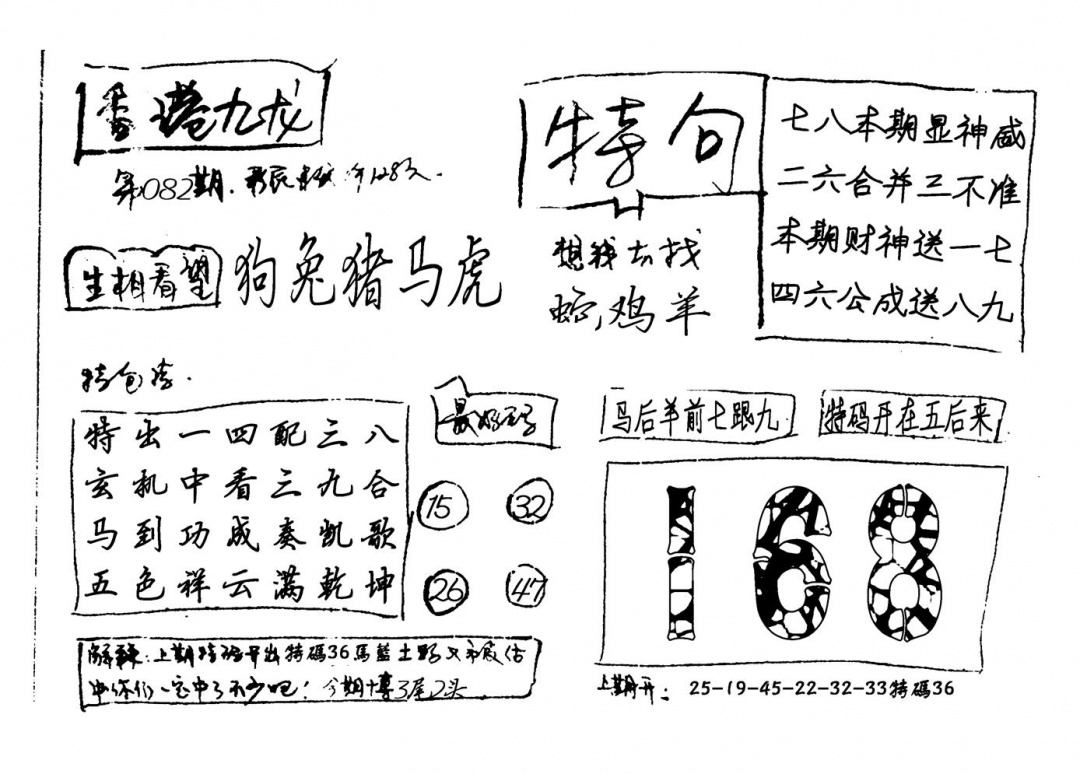 香港九龙
第082期.
特句
七八本期显神威
二六合并三不准
本期财神送一七
四六公成送八九
生相看望
狗兔猪马虎
想我去找
蛇,鸡羊
特包
特出一四配三八
玄机中看三九合
马到功成奏凯歌
五色祥云满乾坤
最好码
15
32
26
47
马后羊前七跟九
特码开在五后来
168
解释:上期特码开出特碼36馬藍土野又被估
中你们一定中了不少吧!今期博3尾2头
上期开: 25-19-45-22-32-33特碼36